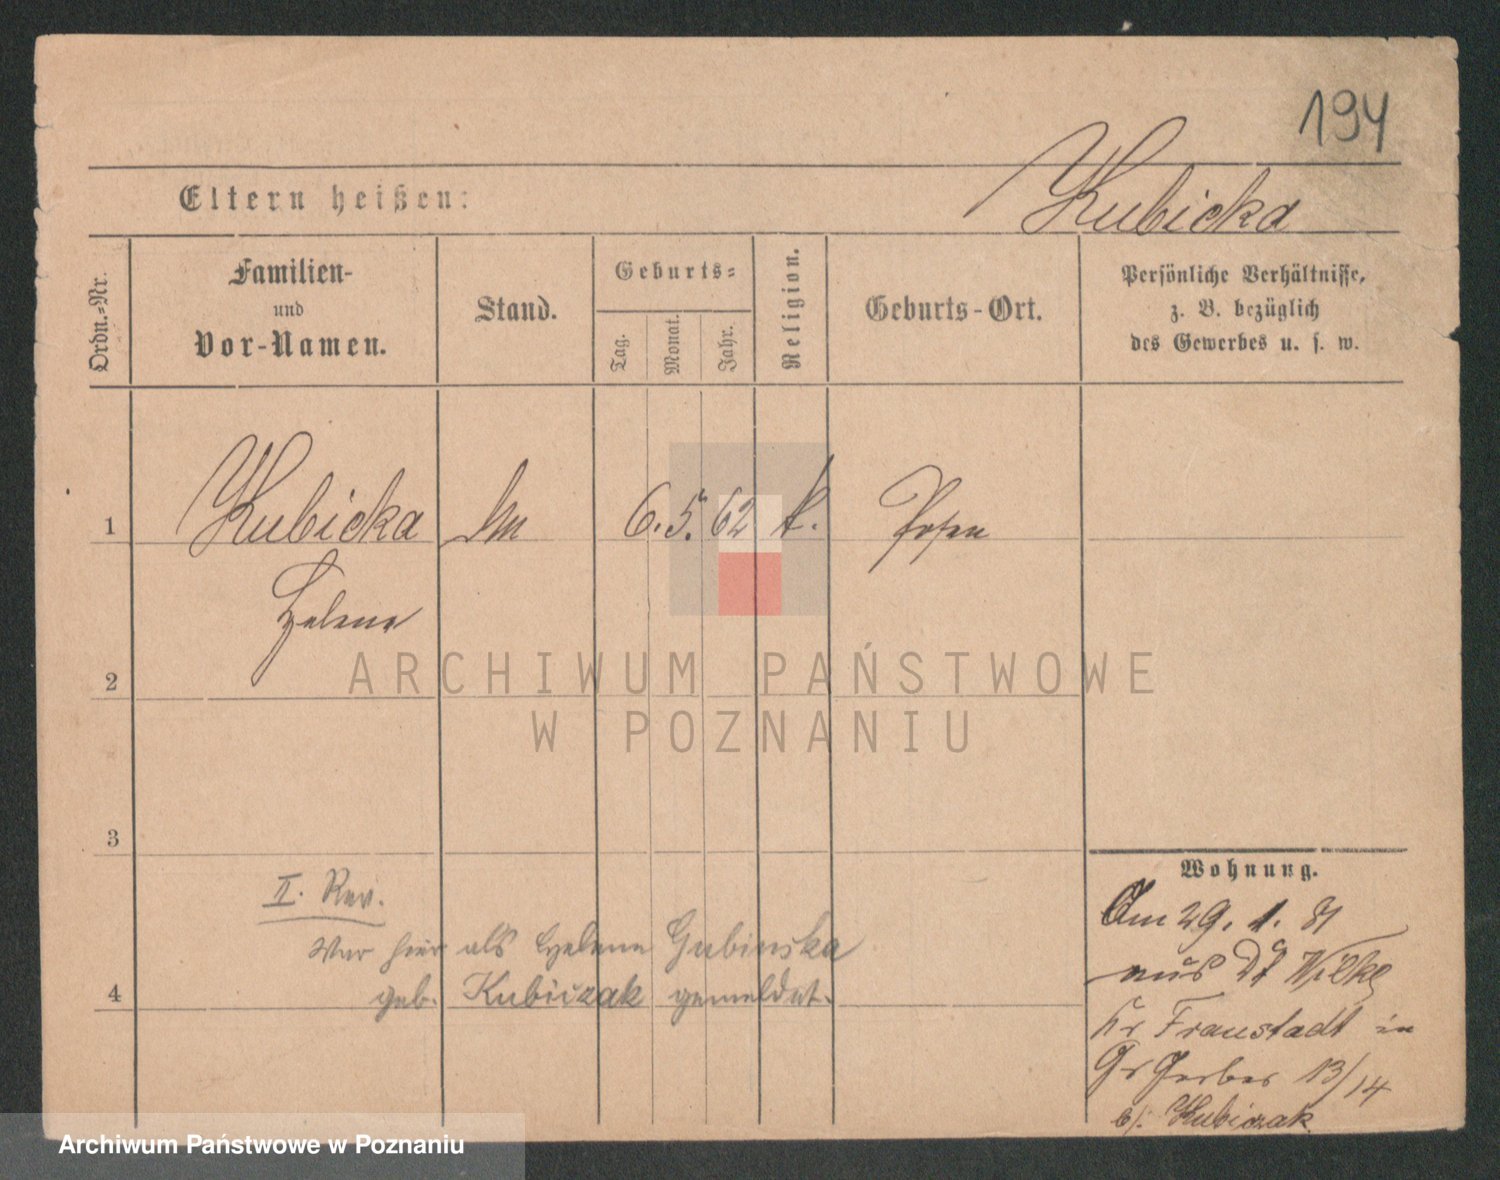 194
Eltern heißen:
Kubicka
Ordn.-Nr.
Familien-
und
Vor-Namen.
Stand.
Geburts-
Tag.
Monat.
Jahr.
Religion.
Geburts-Ort.
Persönliche Verhältnisse,
z. B. bezüglich
des Gewerbes u. s. w.
1 Kubicka 6. 5. 62 k. Posen
Helene
2
3
4
II. Rev.
War hier als Helene Gubinska
geb. Kubiczak gemeldet.
Wohnung.
Am 29. 1. 81
aus Wilke
Kr Fraustadt in
Gr Gerber 13/14
b/. Kubiczak
ARCHIWUM PAŃSTWOWE
W POZNANIU
Archiwum Państwowe w Poznaniu